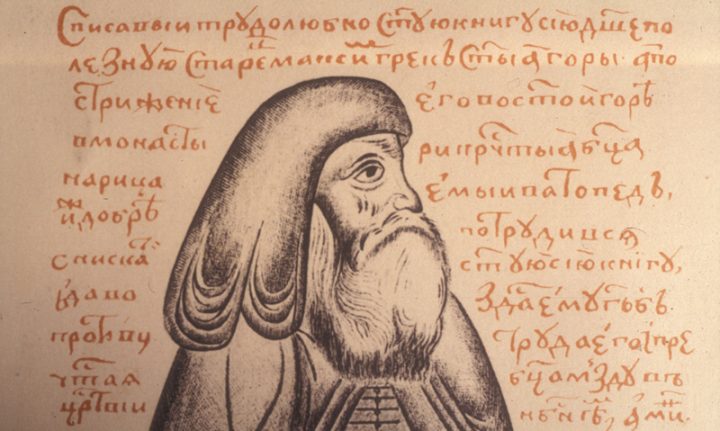 Списавыи трудолюбно стую книгу сїю дшепо
лезную старе маѯи грекъ стыѧ горы. а по
стрижение его во стои горѣ
в монасты ри прчтыѧ бца
нарица емыи ватопедъ,
и добрѣ потрудивсѧ
списка стую сїю книгу,
да во здаⷭ ему гь бъ.
противу труда его и пре
чтая бца мзду въ
цртвии